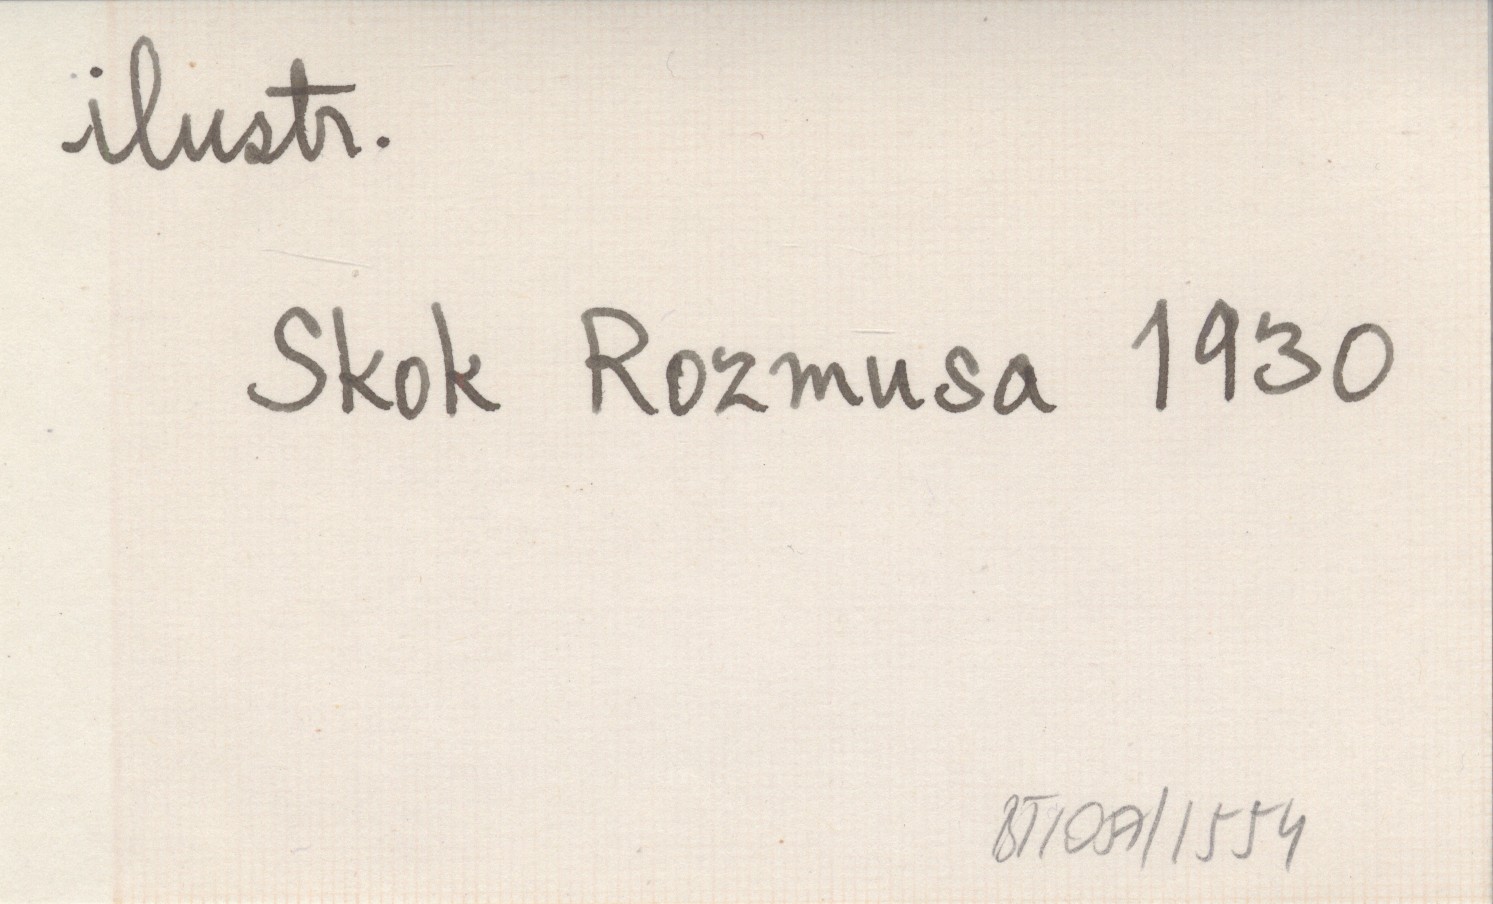 ilustr.
Skok Rozmusa 1930
BT/OA/1554